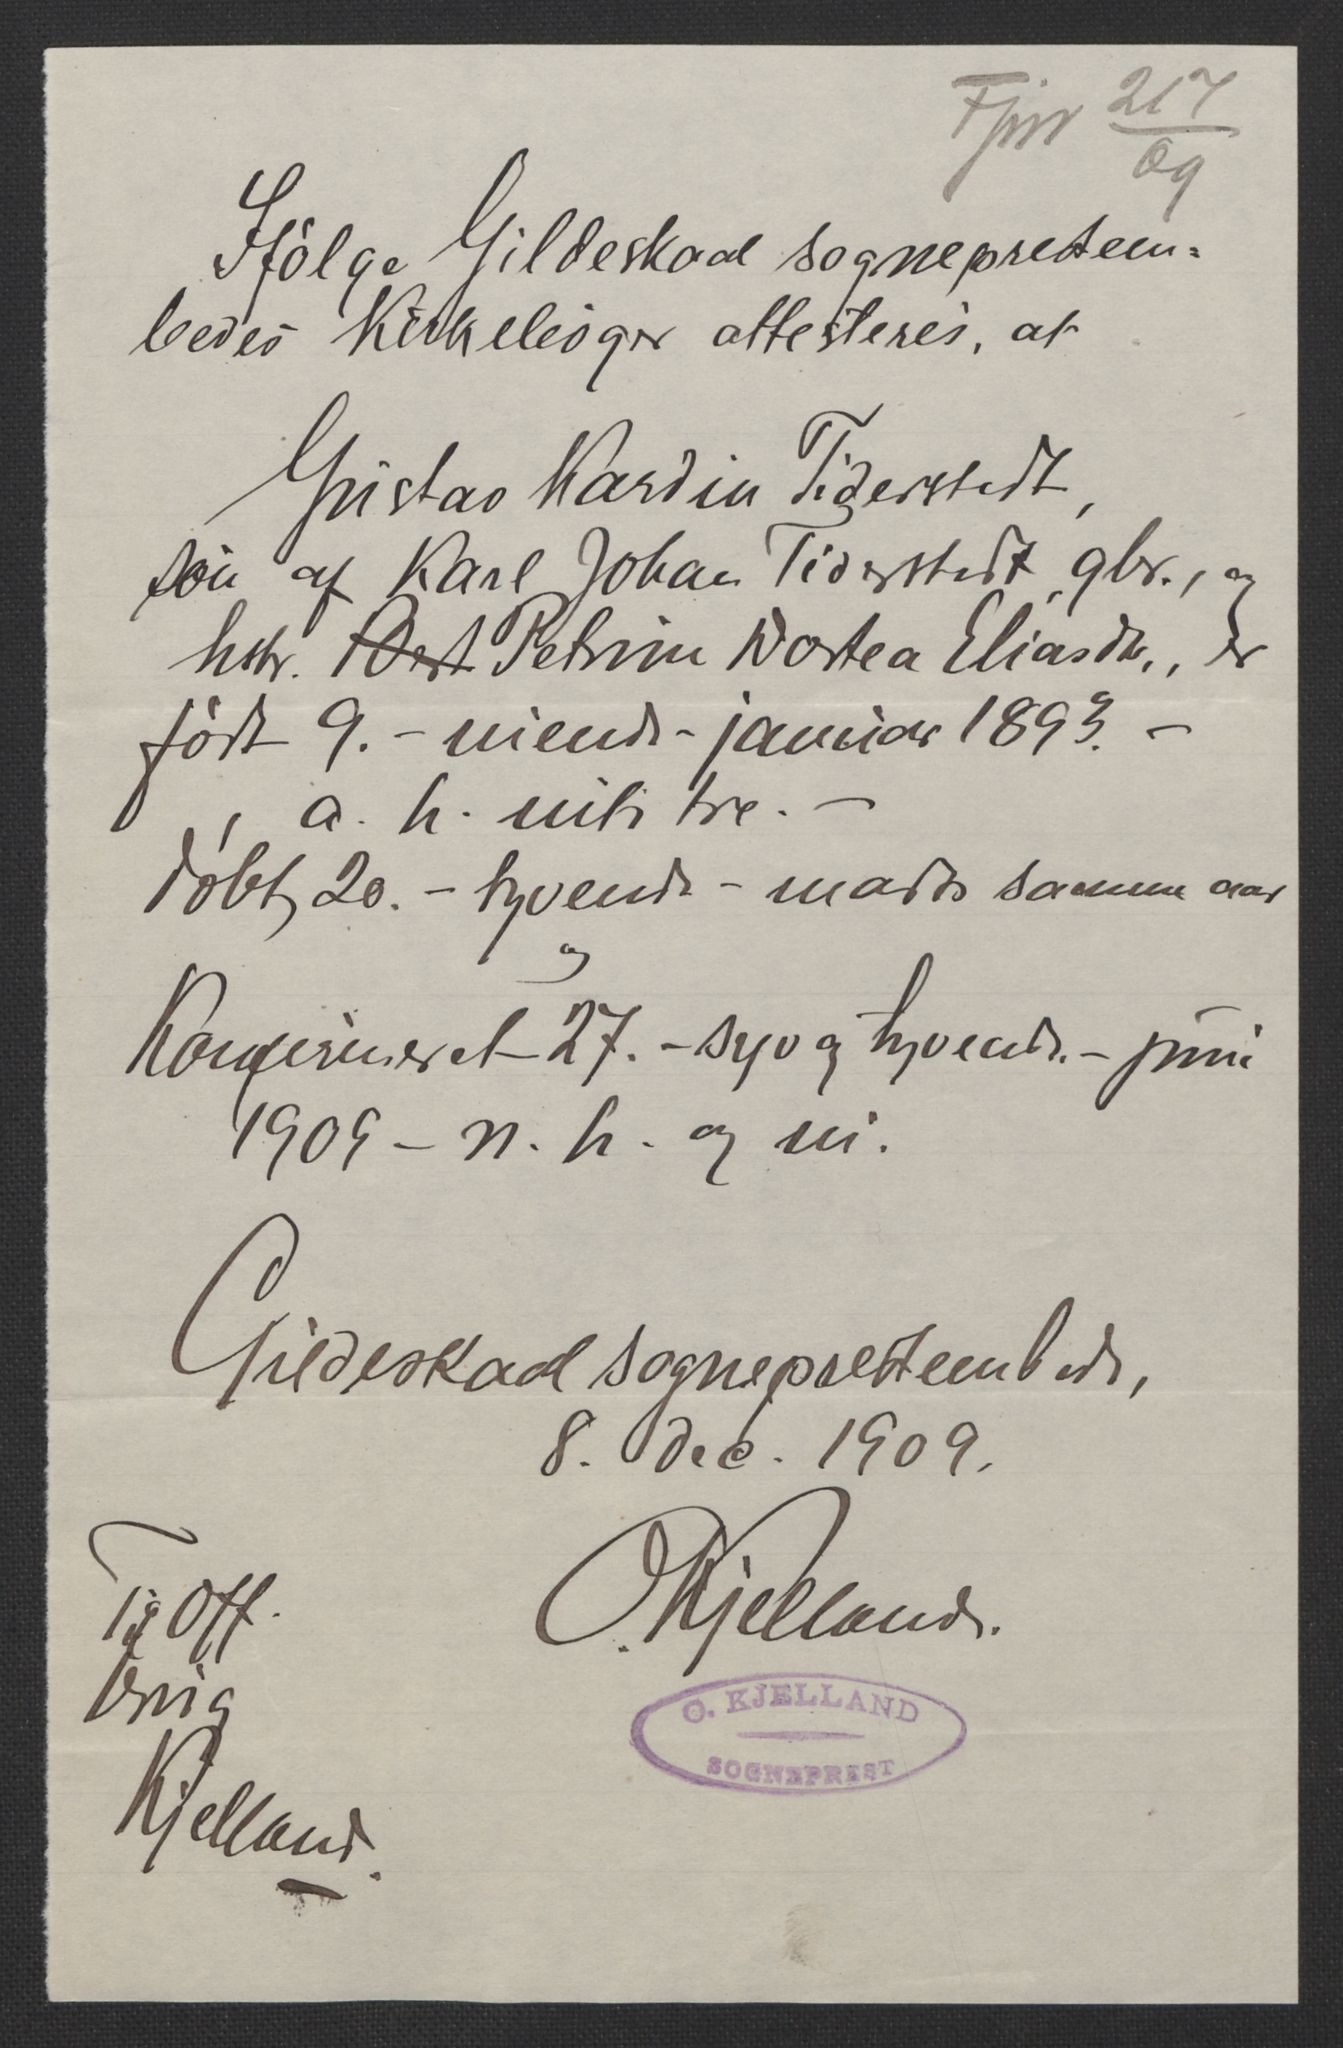 Fjnr 217/09
Ifölge Gildeskaal sogneprestem-
bedes Kirkebøger attesteres, at
Gustav Kardin Tiderstedt,
søn af Karl Johan Tiderstedt, gbr., og
hstr. Petrine Dortea Eliasdtr., er
född 9. - niende - januar 1893. -
a. h. nitti tre. -
döbt, 20. - tyvende - marts samme aar
og
Konfirmeret 27. - syv og tyvende. - juni
1909 - n. h. og ni.
Gildeskaal sogneprestembede,
8. dec. 1909.
O. Kjelland.
O. KJELLAND
SOGNEPREST
Off.
brug
Kjelland.